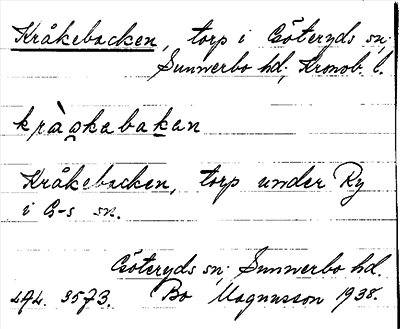 Kråkebacken, torp i Göteryds sn;
Sunnerbo hd; Kronob. l.
kràkabakan
Kråkebacken, torp under Ry
i G-s sn.
Göteryds sn; Sunnerbo hd.
494. 3573. Bo Magnusson 1938.